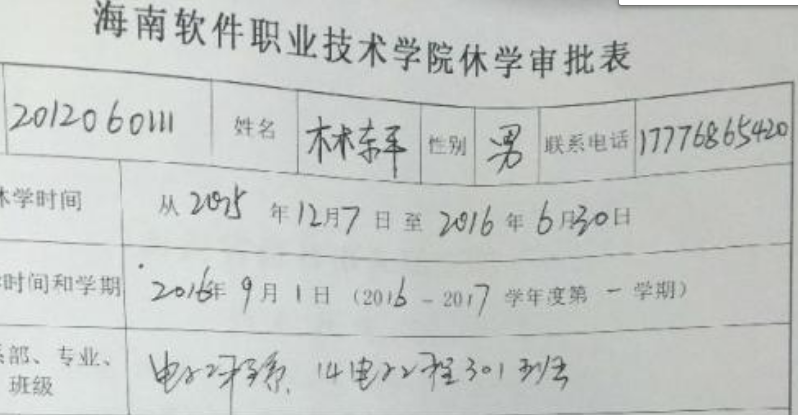 海南软件职业技术学院休学审批表
2012060111 姓名 林东平 性别 男 联系电话 17776865420
休学时间 从2015年12月7日至2016年6月30日
时间和学期 2016年9月1日(2016-2017学年度第一学期)
部、专业、 电子工程系 14电子工程301班
班级